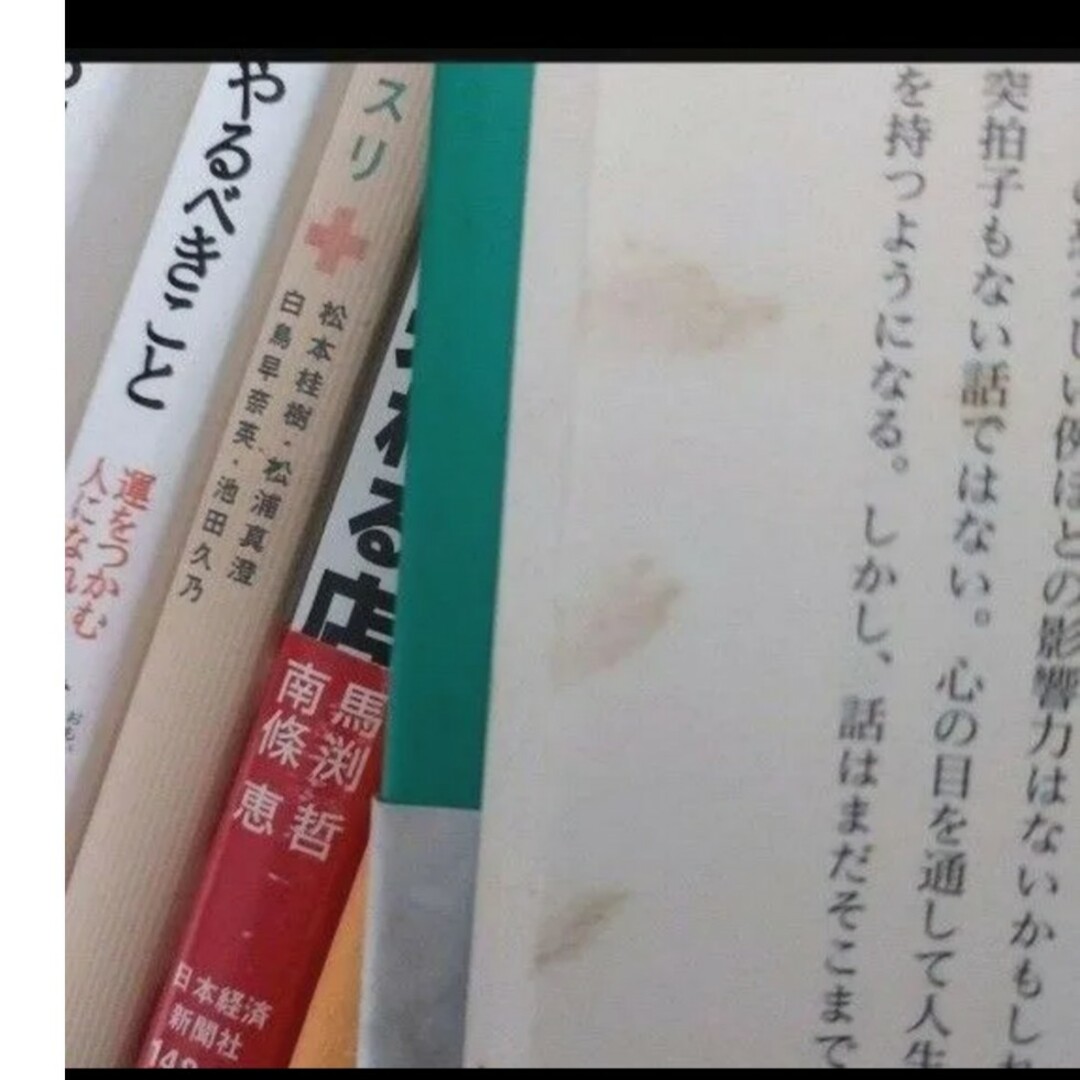 やるべきこと
運をつかむ
人になれ
スリ
松本桂樹・松浦真澄
白鳥早奈英・池田久乃
れる店
馬渕 哲
南條 恵
日本経済
新聞社
しい例ほどの影響力はないかもしれ
突拍子もない話ではない。心の目を通して人生
を持つようになる。しかし、話はまだそこまで